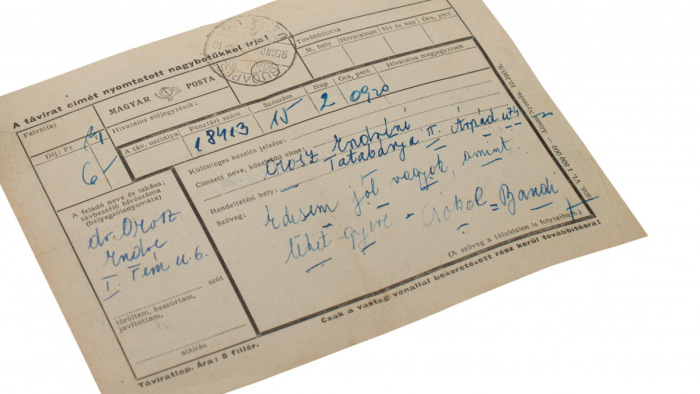 A távirat címét nyomtatott nagybetűkkel írja!
MAGYAR POSTA
Továbbította
M. hely Hivatalnak Hó és nap Óra, perc
Felvette:
Hivatalos előjegyzések:
Díj: Ft
6-
A táv. osztálya Pénztári szám Szószám Nap Óra, perc Hivatalos megjegyzések:
18413 15 2 0920
Különleges kezelés jelzése:
Címzett neve, közelebbi címe:
Orosz Endréné
Tatabánya II. Árpád u.
Rendeltetési hely:
Szöveg:
Édesem jól vagyok, amint
lehet gyere - Csókol = Bandi
(A szöveg a túloldalon is folytatható.)
A feladó neve és lakása;
távbeszélő hívószáma
(helyegzőlenyomata)
dr. Orosz
Endre
I. Fém u. 6.
szót
töröltem, beszúrtam,
javítottam,
aláírás
Csak a vastag vonallal bekeretezett rész kerül továbbításra!
Táviratlap. Ára: 8 fillér.